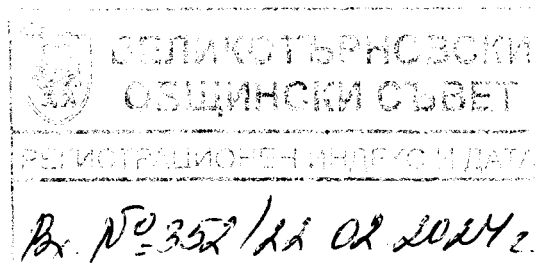 ВЕЛИКОТЪРНОВСКИ
ОБЩИНСКИ СЪВЕТ
РЕГИСТРАЦИОНЕН ИНДЕКС И ДАТА
Вх. № 352/22 02 2024 г.